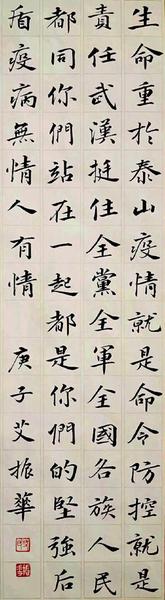 生命重於泰山疫情就是命令防控就是
責任武漢挺住全黨全軍全國各族人民
都同你們站在一起都是你們的堅強后
盾疫病無情人有情 庚子艾振華